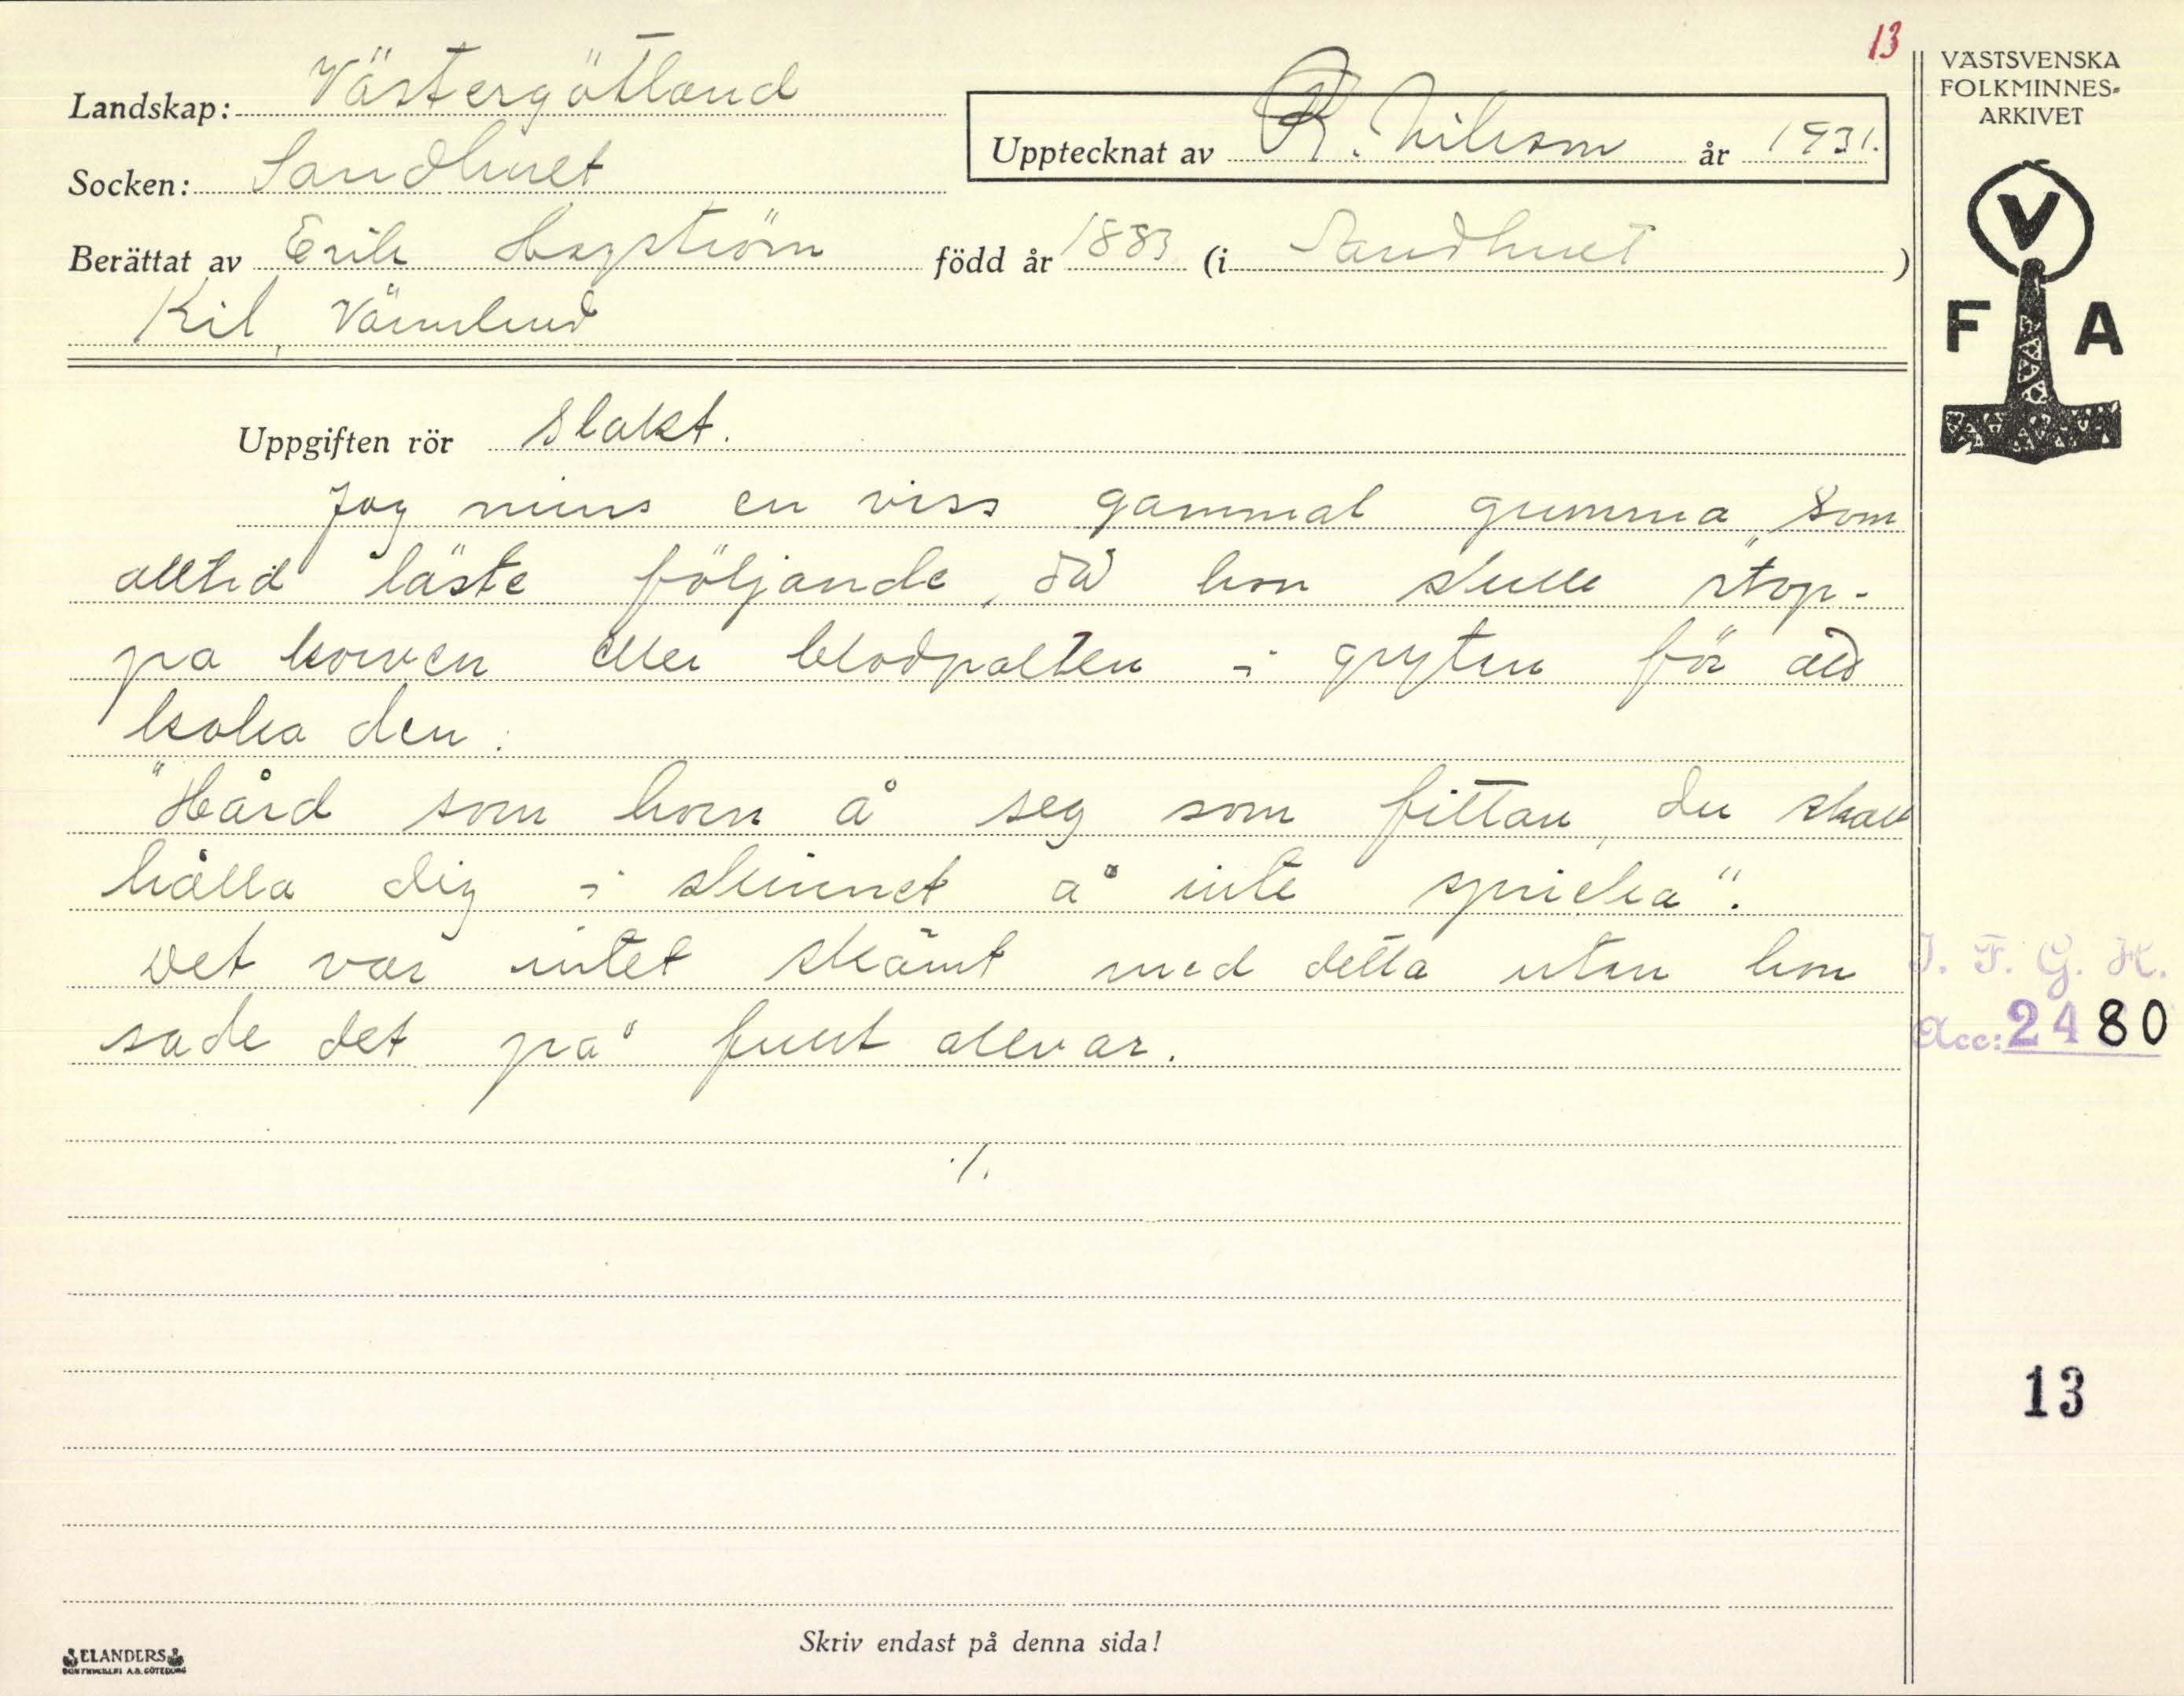 13
VÄSTSVENSKA
FOLKMINNES-
ARKIVET
Landskap: Västergötland
Upptecknat av R. Nilsson år 1931.
Socken: Sandhult
Berättat av Erik Hagström född år 1883 (i Sandhult)
Kil, Värmland
V
F A
Uppgiften rör Slakt.
Jag mins en viss gammal gumma som
alltid läste följande, då hon skulle stop-
pa korven eller blodpalten i grytan för att
koka den:
"Hård som horn å seg som fittan, du skall
hålla dig i skinnet å inte spricka".
Det var intet skämt med detta utan hon
sade det på fullt allvar.
./.
I. F. G. H.
Acc: 2480
13
Skriv endast på denna sida!
ELANDERS
BOKTRYCKERI A.B. GÖTEBORG